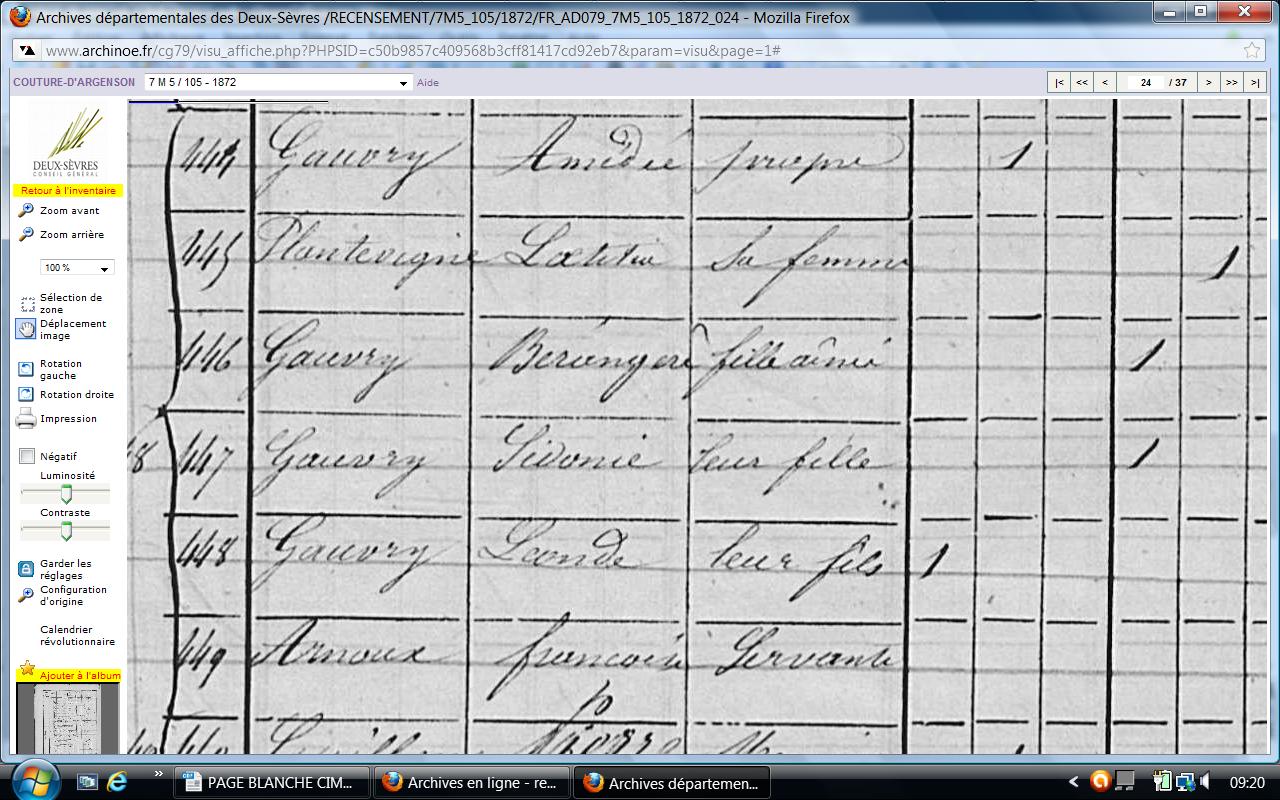 Archives départementales des Deux-Sèvres /RECENSEMENT/7M5_105/1872/FR_AD079_7M5_105_1872_024 - Mozilla Firefox
www.archinoe.fr/cg79/visu_affiche.php?PHPSID=c50b9857c409568b3cff81417cd92eb7&param=visu&page=1#
COUTURE-D'ARGENSON 7 M 5 / 105 - 1872 Aide |< << < 24 / 37 > >> >|
DEUX-SÈVRES
CONSEIL GÉNÉRAL
Retour à l'inventaire
Zoom avant
Zoom arrière
100 %
Sélection de
zone
Déplacement
image
Rotation
gauche
Rotation droite
Impression
Négatif
Luminosité
Contraste
Garder les
réglages
Configuration
d'origine
Calendrier
révolutionnaire
Ajouter à l'album
444 Gauvry Amédée propre 1
445 Plantevigne Lœtitia Sa femme 1
446 Gauvry Berengère fille aînée 1
8 447 Gauvry Sidonie leur fille 1
448 Gauvry Léonde leur fils 1
449 Arnoux francoise Servante
PAGE BLANCHE CIM... Archives en ligne - re... Archives départemen... < 09:20